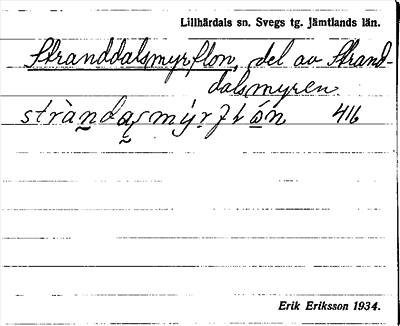 Lillhärdals sn. Svegs tg. Jämtlands län.
Stranddalsmyrflon, del av Strand-
dalsmyren.
416
Erik Eriksson 1934.